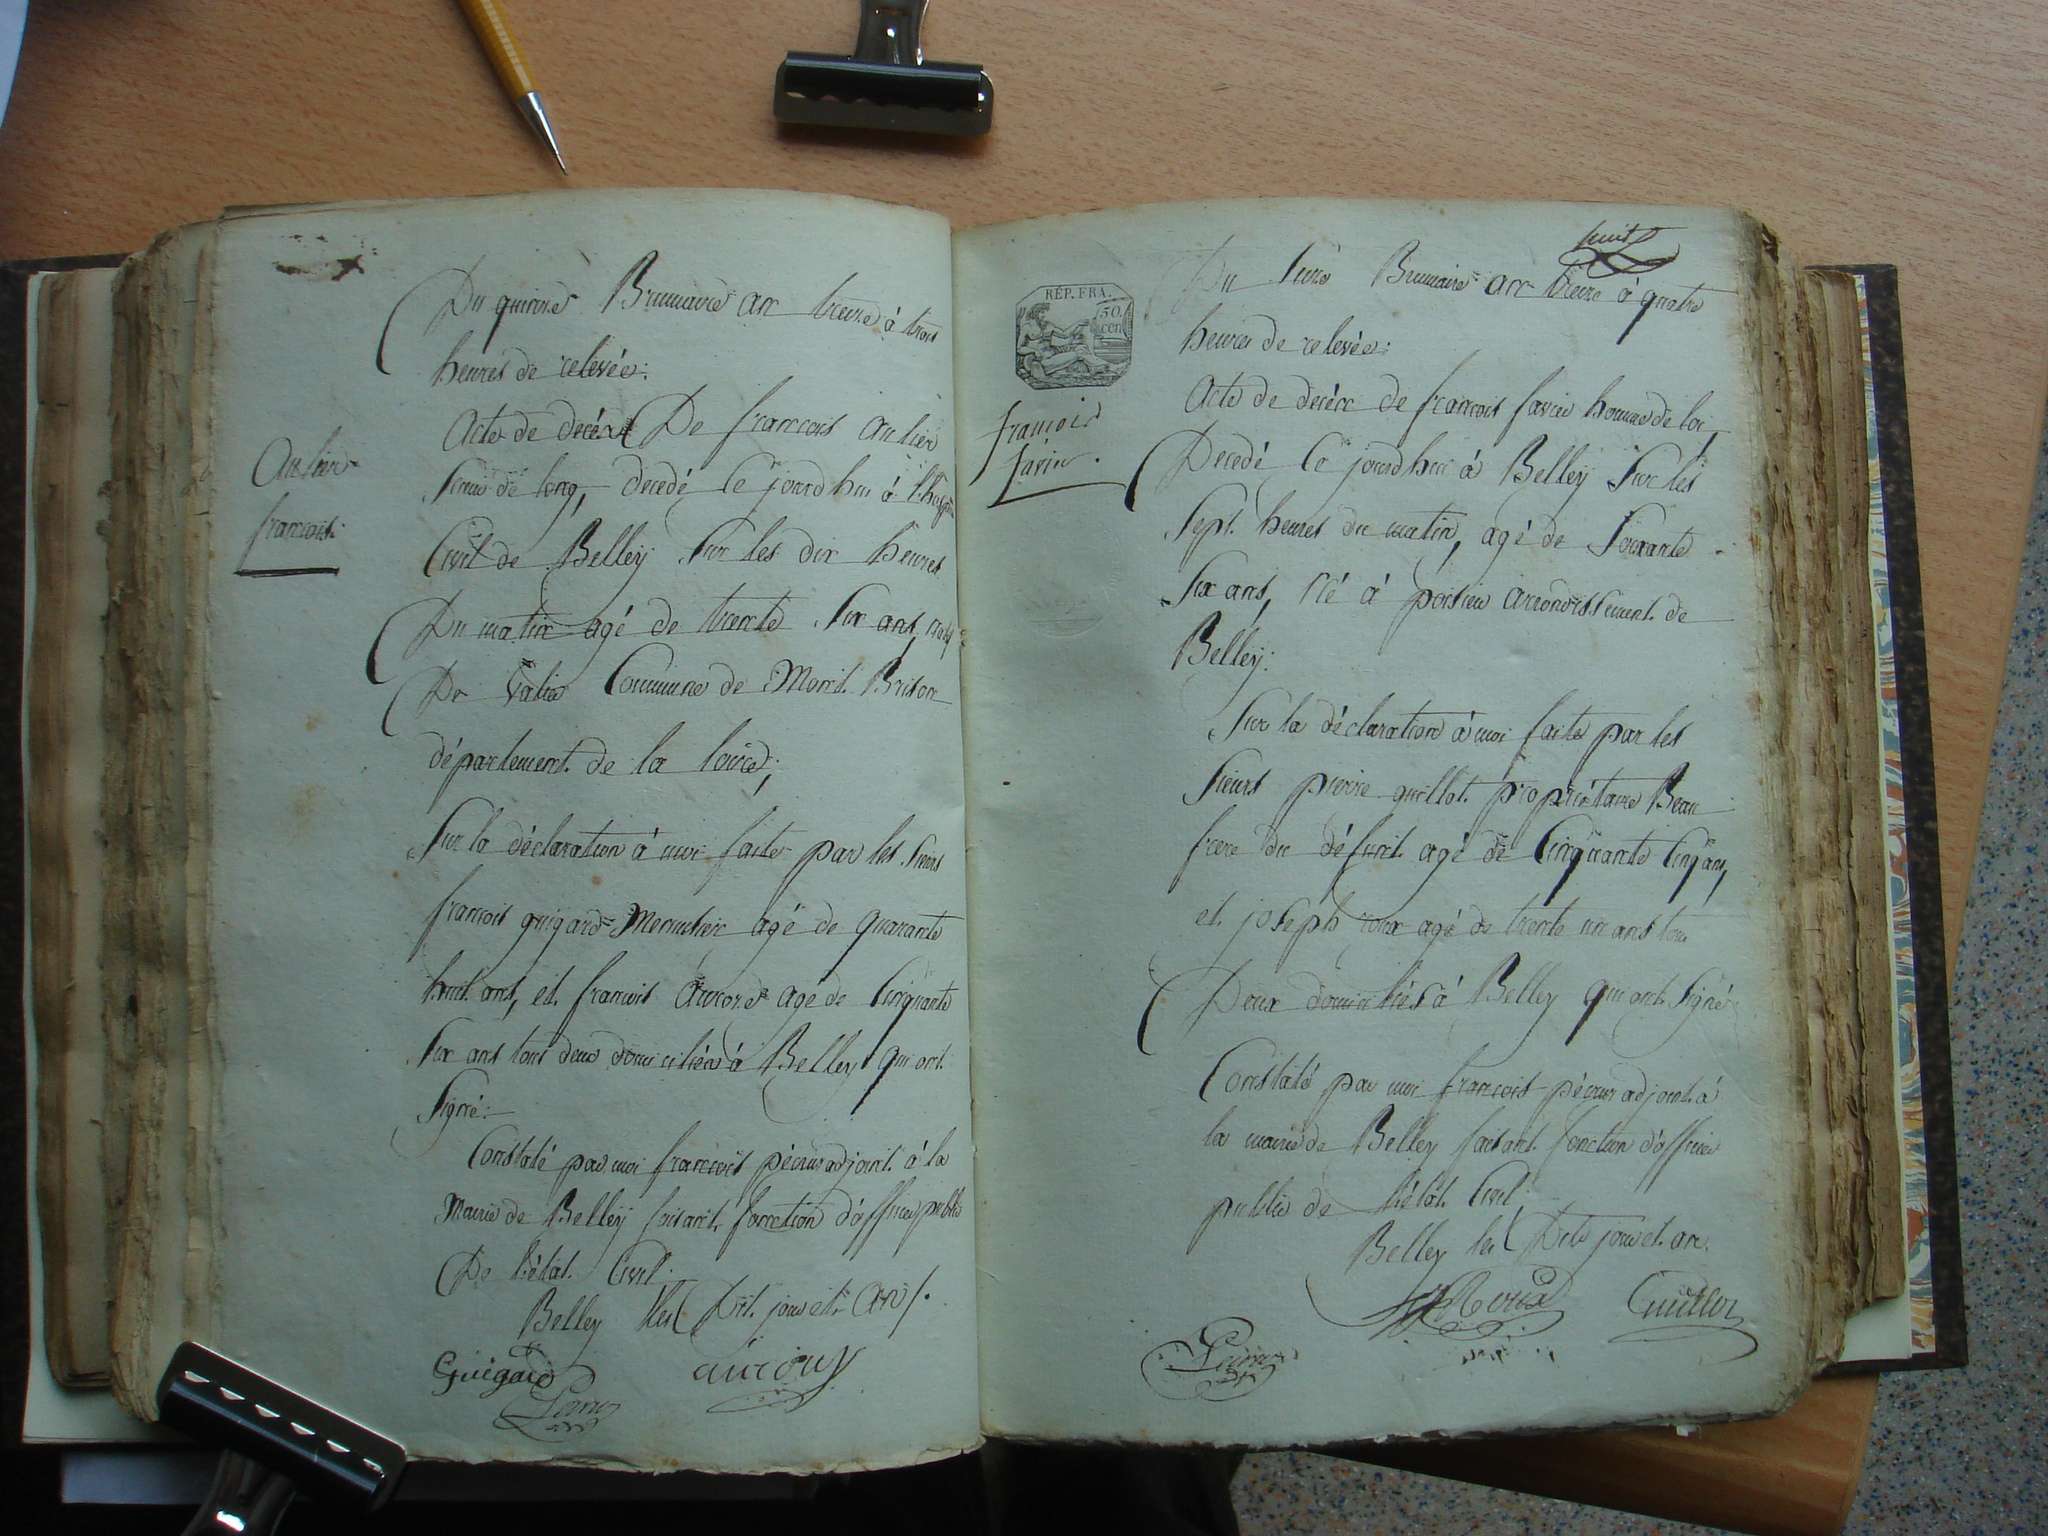 Du quinze Brumaire an treize à trois
heures de relevée:
Acte de décès De françois autier
Scieur de long, decedé Ce jourdhui à l'hospice
Civil de Belley Sur les dix heures
Du matin agé de trente Six ans, natif
De Commune de Mont Brison
département de la loire;
Sur la déclaration à moi faite par les Sieurs
françois guigard Menuisier agé de quarante
huit ans, et françois aurore agé de Cinquante
Six ans tous deux domiciliés à Belley qui ont
Signé:
Constaté par moi françois pécour adjoint à la
Mairie de Belley faisant fonction d'officier public
De l'état Civil.
Belley les Dit jour et an.
Guigard
autier
françois
huit
Du Seize Brumaire an treize à quatre
heures de relevée:
Acte de décès de françois favier homme de loi,
Decedé Ce jourdhui à Belley Sur les
Sept heures du matin, agé de Soixante
Six ans, né à poisieu arrondissement de
Belley:
Sur la déclaration à moi faite par les
Sieurs pierre guillot propriétaire Beau
frere du défunt agé de Cinquante Cinq ans,
et joseph roux agé de trente un ans tous
Deux domiciliés à Belley qui ont Signé
Constaté par moi françois pécour adjoint à
la mairie de Belley faisant fonction d'officier
public de l'état Civil.
Belley les Dits jour et an.
Roux Guillot
RÉP. FRA.
50
cen
françois
favier.